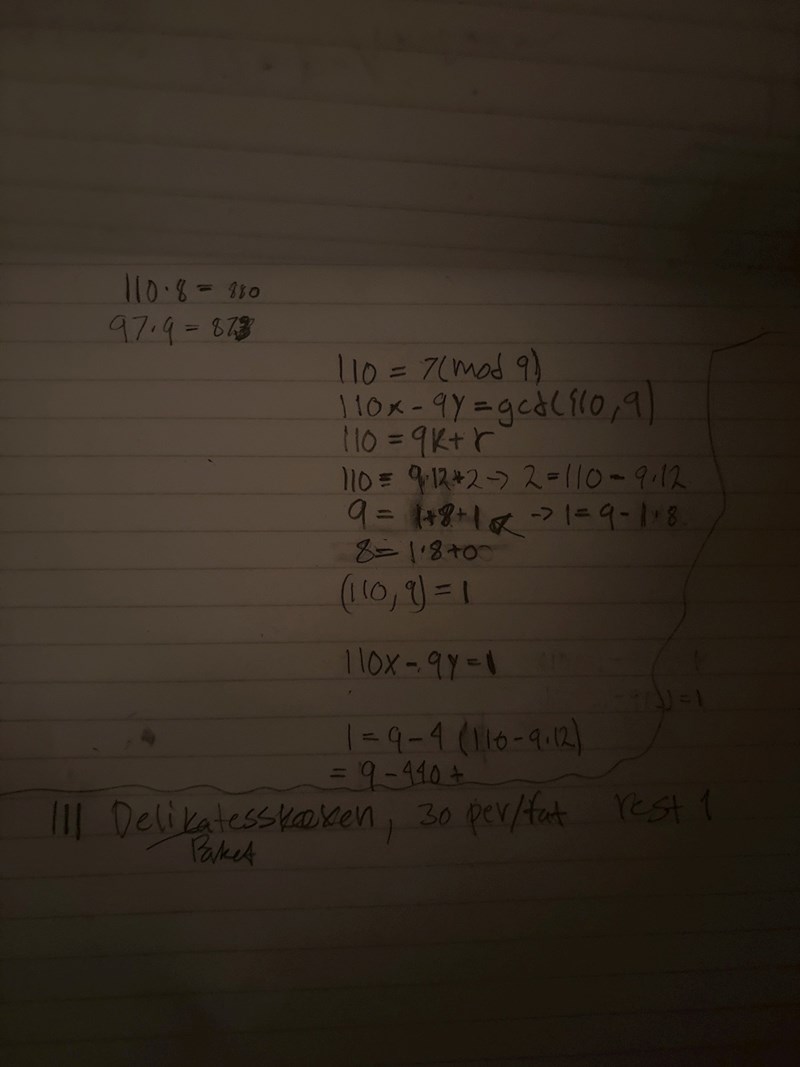 110·8 = 880
97·9 = 873
110 = 7(mod 9)
110x - 9y = gcd(110,9)
110 = 9k+r
110 = 9·12+2 -> 2 = 110 - 9·12
9 = 1+8+1 -> 1 = 9 - 1·8
8 = 1·8+0
(110,9) = 1
110x - 9y = 1
1 = 9 - 4 (110 - 9·12)
= 9 - 440 +
111 Delikatesskaken, 30 per/fat rest 1
Paket